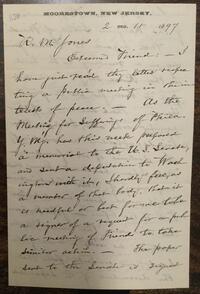 MOORESTOWN, NEW JERSEY,
2 mo. 11 1897
R. M. Jones
Esteemed Friend: —I
have just read thy letter respec
ting a public meeting in the in
terest of peace. — As the
Meeting for Sufferings of Phila
Y. Mg. has this week prepared
a memorial to the U. S. Senate,
and sent a deputation to Wash
ington with it, I hardly feel, as
a member of that body, that it
is needful or best for me to be
a signer of a request for a pub
lic meeting of Friends to take
similar action. — The paper
sent to the Senate is signed